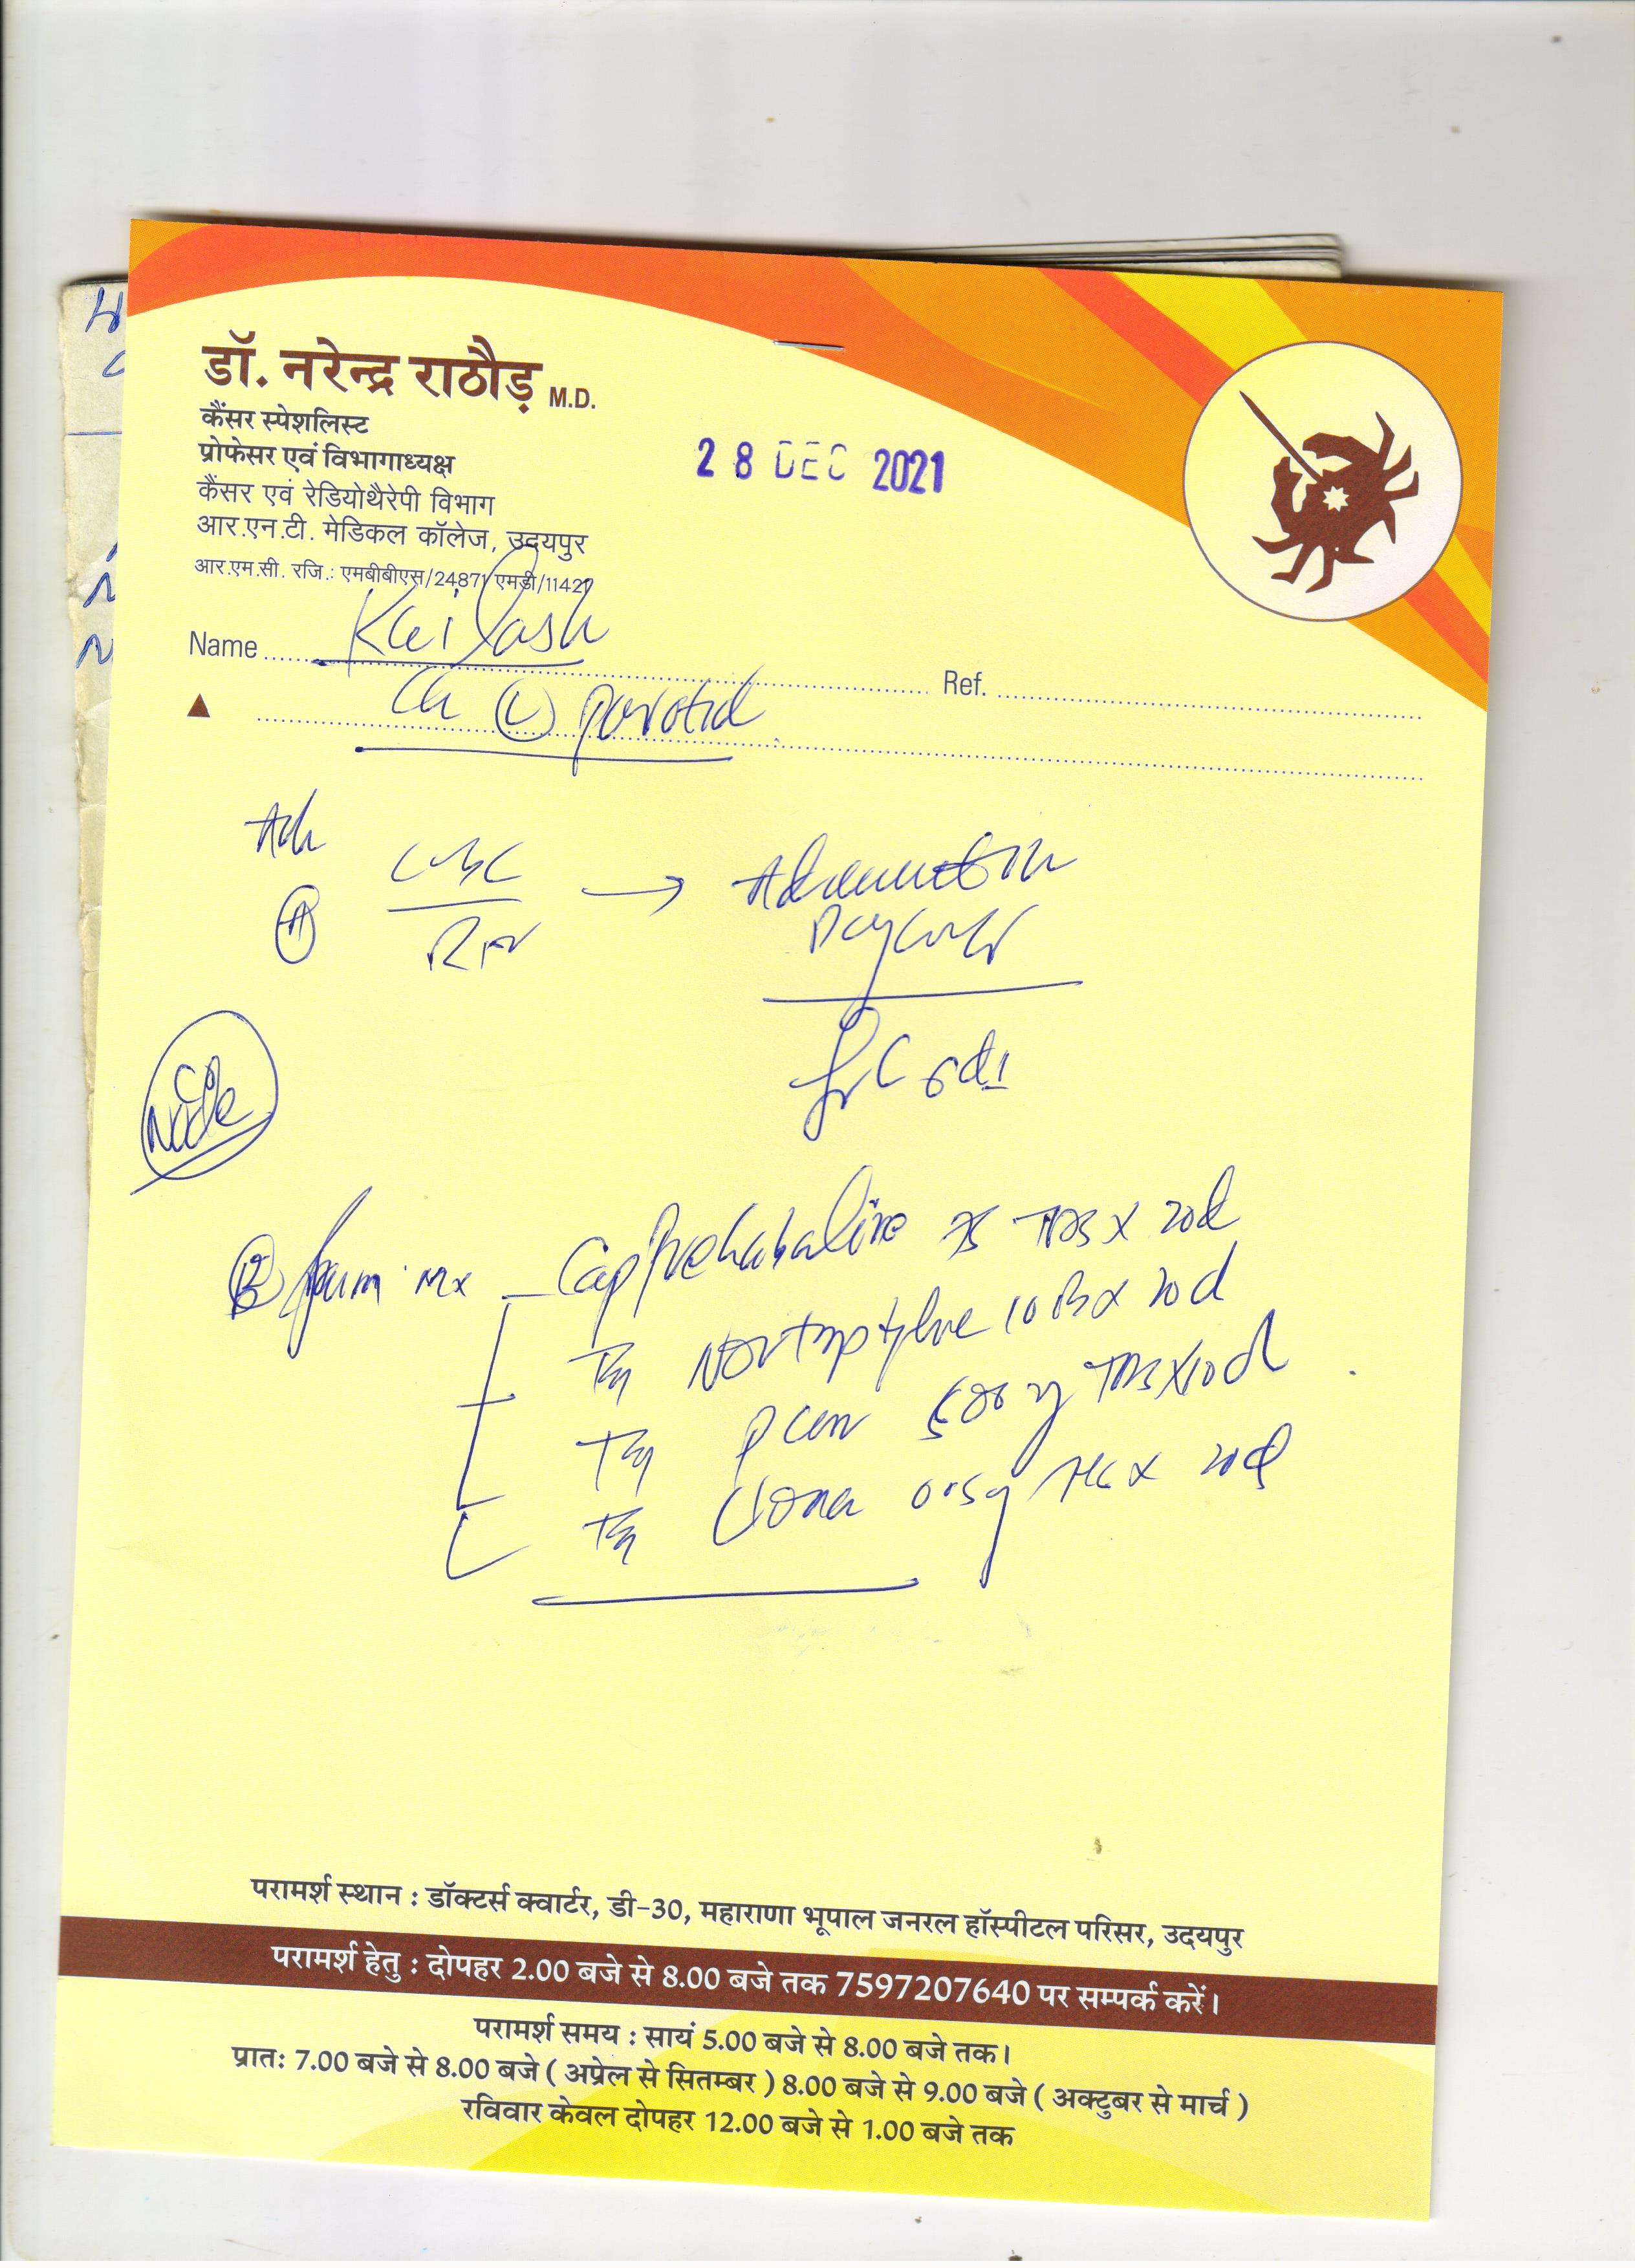 डॉ. नरेन्द्र राठौड़ M.D.
कैंसर स्पेशलिस्ट
प्रोफेसर एवं विभागाध्यक्ष
कैंसर एवं रेडियोथैरेपी विभाग
आर.एन.टी. मेडिकल कॉलेज, उदयपुर
आर.एम.सी. रजि.: एमबीबीएस/24871 एमडी/11427
28 DEC 2021
Name Kailash
Ref.
Ca (L) parotid
Adv
(A) CBC → Admission
RFT Daycare
for C
Node
(B) Pain Mx Cap Prehabaline 75 TDS x 20d
Tab Nortryptyline 10 BD x 20d
Tab PCM 500 mg TDS x 10d
Tab Clona 0.5 mg HS x 20d
परामर्श स्थान : डॉक्टर्स क्वार्टर, डी-30, महाराणा भूपाल जनरल हॉस्पीटल परिसर, उदयपुर
परामर्श हेतु : दोपहर 2.00 बजे से 8.00 बजे तक 7597207640 पर सम्पर्क करें।
परामर्श समय : सायं 5.00 बजे से 8.00 बजे तक।
प्रातः 7.00 बजे से 8.00 बजे ( अप्रेल से सितम्बर ) 8.00 बजे से 9.00 बजे ( अक्टुबर से मार्च )
रविवार केवल दोपहर 12.00 बजे से 1.00 बजे तक